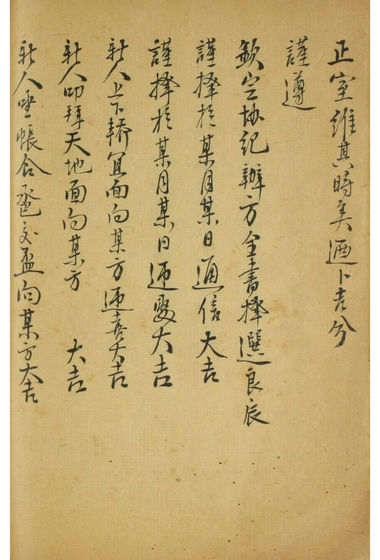 正室維其時矣迺卜吉兮
謹遵
欽定協紀辦方全書擇選良辰
謹擇於某月某日通信大吉
謹擇於某月某日迎娶大吉
新人上下轎宜面向某方迎喜大吉
新人叩拜天地面向某方 大吉
新人坐帳合卺交盃向某方大吉